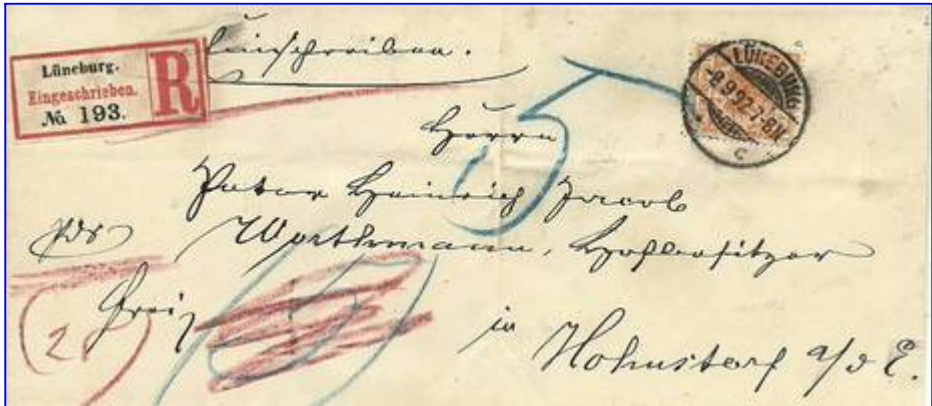 Lüneburg.
Eingeschrieben.
No. 193.
R
Einschreiben.
LÜNEBURG
-8.9.92.7-8N.
C
5
Herrn
Peter Heinrich Jacob
Worthmann, Hofbesitzer
frei
2
in
Hohnstorf a/d E.